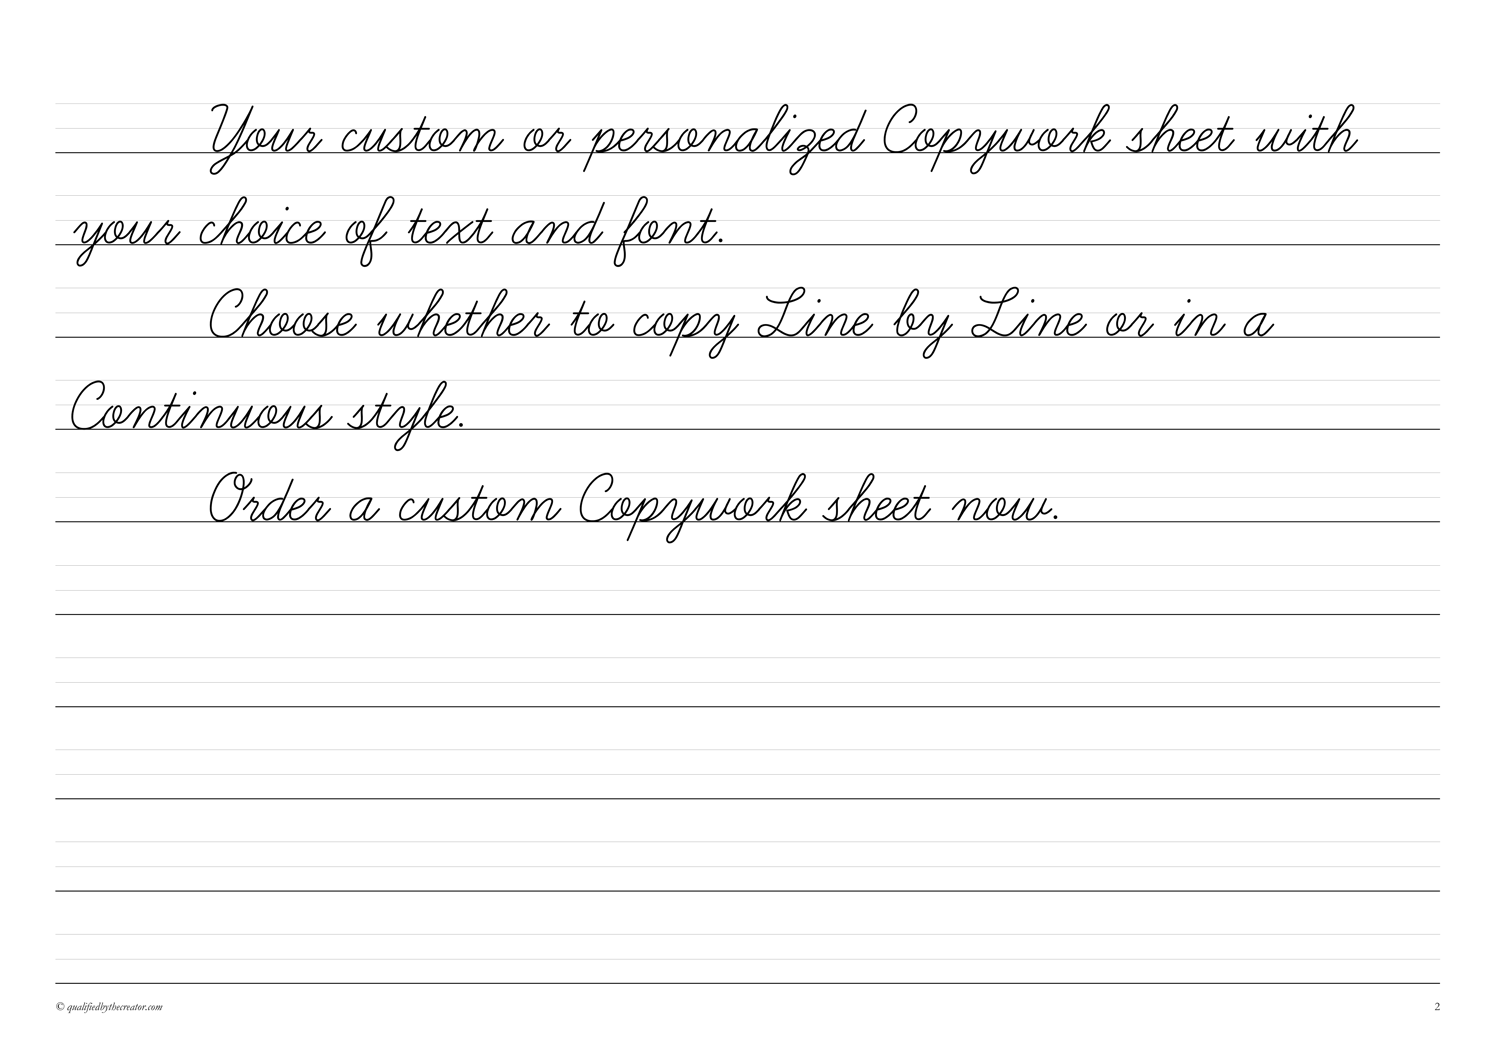 Your custom or personalized Copywork sheet with
your choice of text and font.
Choose whether to copy Line by Line or in a
Continuous style.
Order a custom Copywork sheet now.
© qualifiedbythecreator.com
2